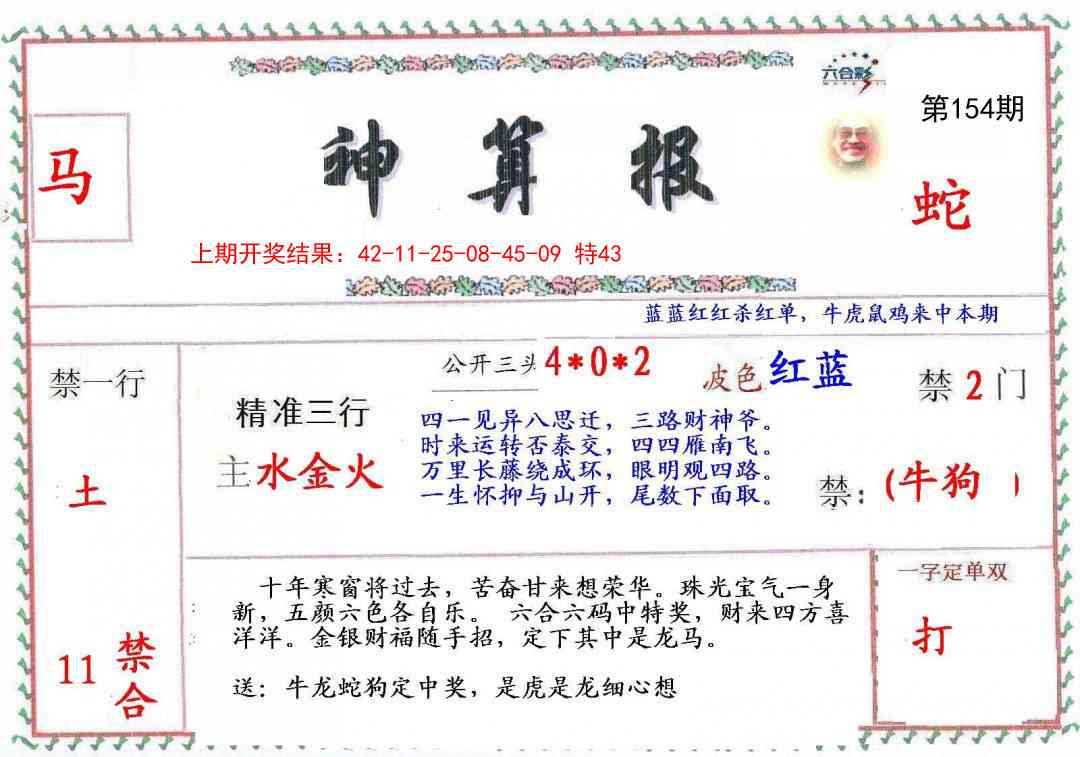 六合彩
第154期
马
神算报
蛇
上期开奖结果：42-11-25-08-45-09 特43
蓝蓝红红杀红单，牛虎鼠鸡来中本期
禁一行
公开三头 4*0*2
波色 红蓝
禁 2 门
精准三行
四一见异八思迁，三路财神爷。
时来运转否泰交，四四雁南飞。
主 水金火
万里长藤绕成环，眼明观四路。
一生怀抑与山开，尾数下面取。
土
禁：(牛狗 )
十年寒窗将过去，苦奋甘来想荣华。珠光宝气一身
新，五颜六色各自乐。 六合六码中特奖，财来四方喜
洋洋。金银财福随手招，定下其中是龙马。
一字定单双
打
11 禁合
送：牛龙蛇狗定中奖，是虎是龙细心想